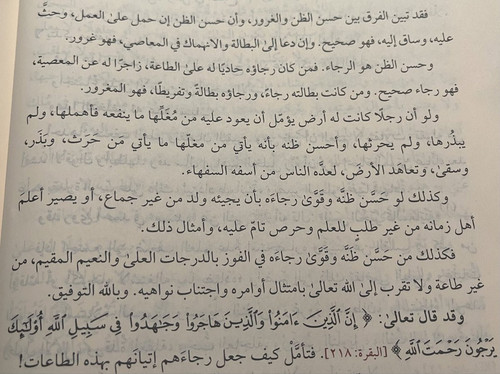 فقد تبين الفرق بين حسن الظن والغرور، وأن حسن الظن إن حمل على العمل، وحثَّ
عليه، وساق إليه، فهو صحيح. وإن دعا إلى البطالة والانهماك في المعاصي، فهو غرور.
وحسن الظن هو الرجاء. فمن كان رجاؤه حاديًا له على الطاعة، زاجرًا له عن المعصية،
فهو رجاء صحيح. ومن كانت بطالته رجاءً، ورجاؤه بطالةً وتفريطًا، فهو المغرور.
ولو أن رجلًا كانت له أرض يؤمِّل أن يعود عليه من مُغَلِّها ما ينفعه فأهملها، ولم
يبذُرها، ولم يحرثها، وأحسن ظنه بأنه يأتي من مغلّها ما يأتي مَن حَرَث، وبَذَر،
وسقى، وتعاهَد الأرضَ، لعدَّه الناس من أسفه السفهاء.
وكذلك لو حَسَّن ظنَّه وقَوَّى رجاءَه بأن يجيئه ولد من غير جماع، أو يصير أعلم
أهل زمانه من غير طلبٍ للعلم وحرص تامّ عليه، وأمثال ذلك.
فكذلك من حَسَّن ظنَّه وقَوَّى رجاءَه في الفوز بالدرجات العلى والنعيم المقيم، من
غير طاعة ولا تقرب إلى الله تعالى بامتثال أوامره واجتناب نواهيه. وبالله التوفيق.
وقد قال تعالى: ﴿إِنَّ ٱلَّذِينَ ءَامَنُوا۟ وَٱلَّذِينَ هَاجَرُوا۟ وَجَٰهَدُوا۟ فِى سَبِيلِ ٱللَّهِ أُو۟لَٰٓئِكَ
يَرْجُونَ رَحْمَتَ ٱللَّهِ﴾ [البقرة: ٢١٨]. فتأمَّل كيف جعل رجاءَهم إتيانَهم بهذه الطاعات!